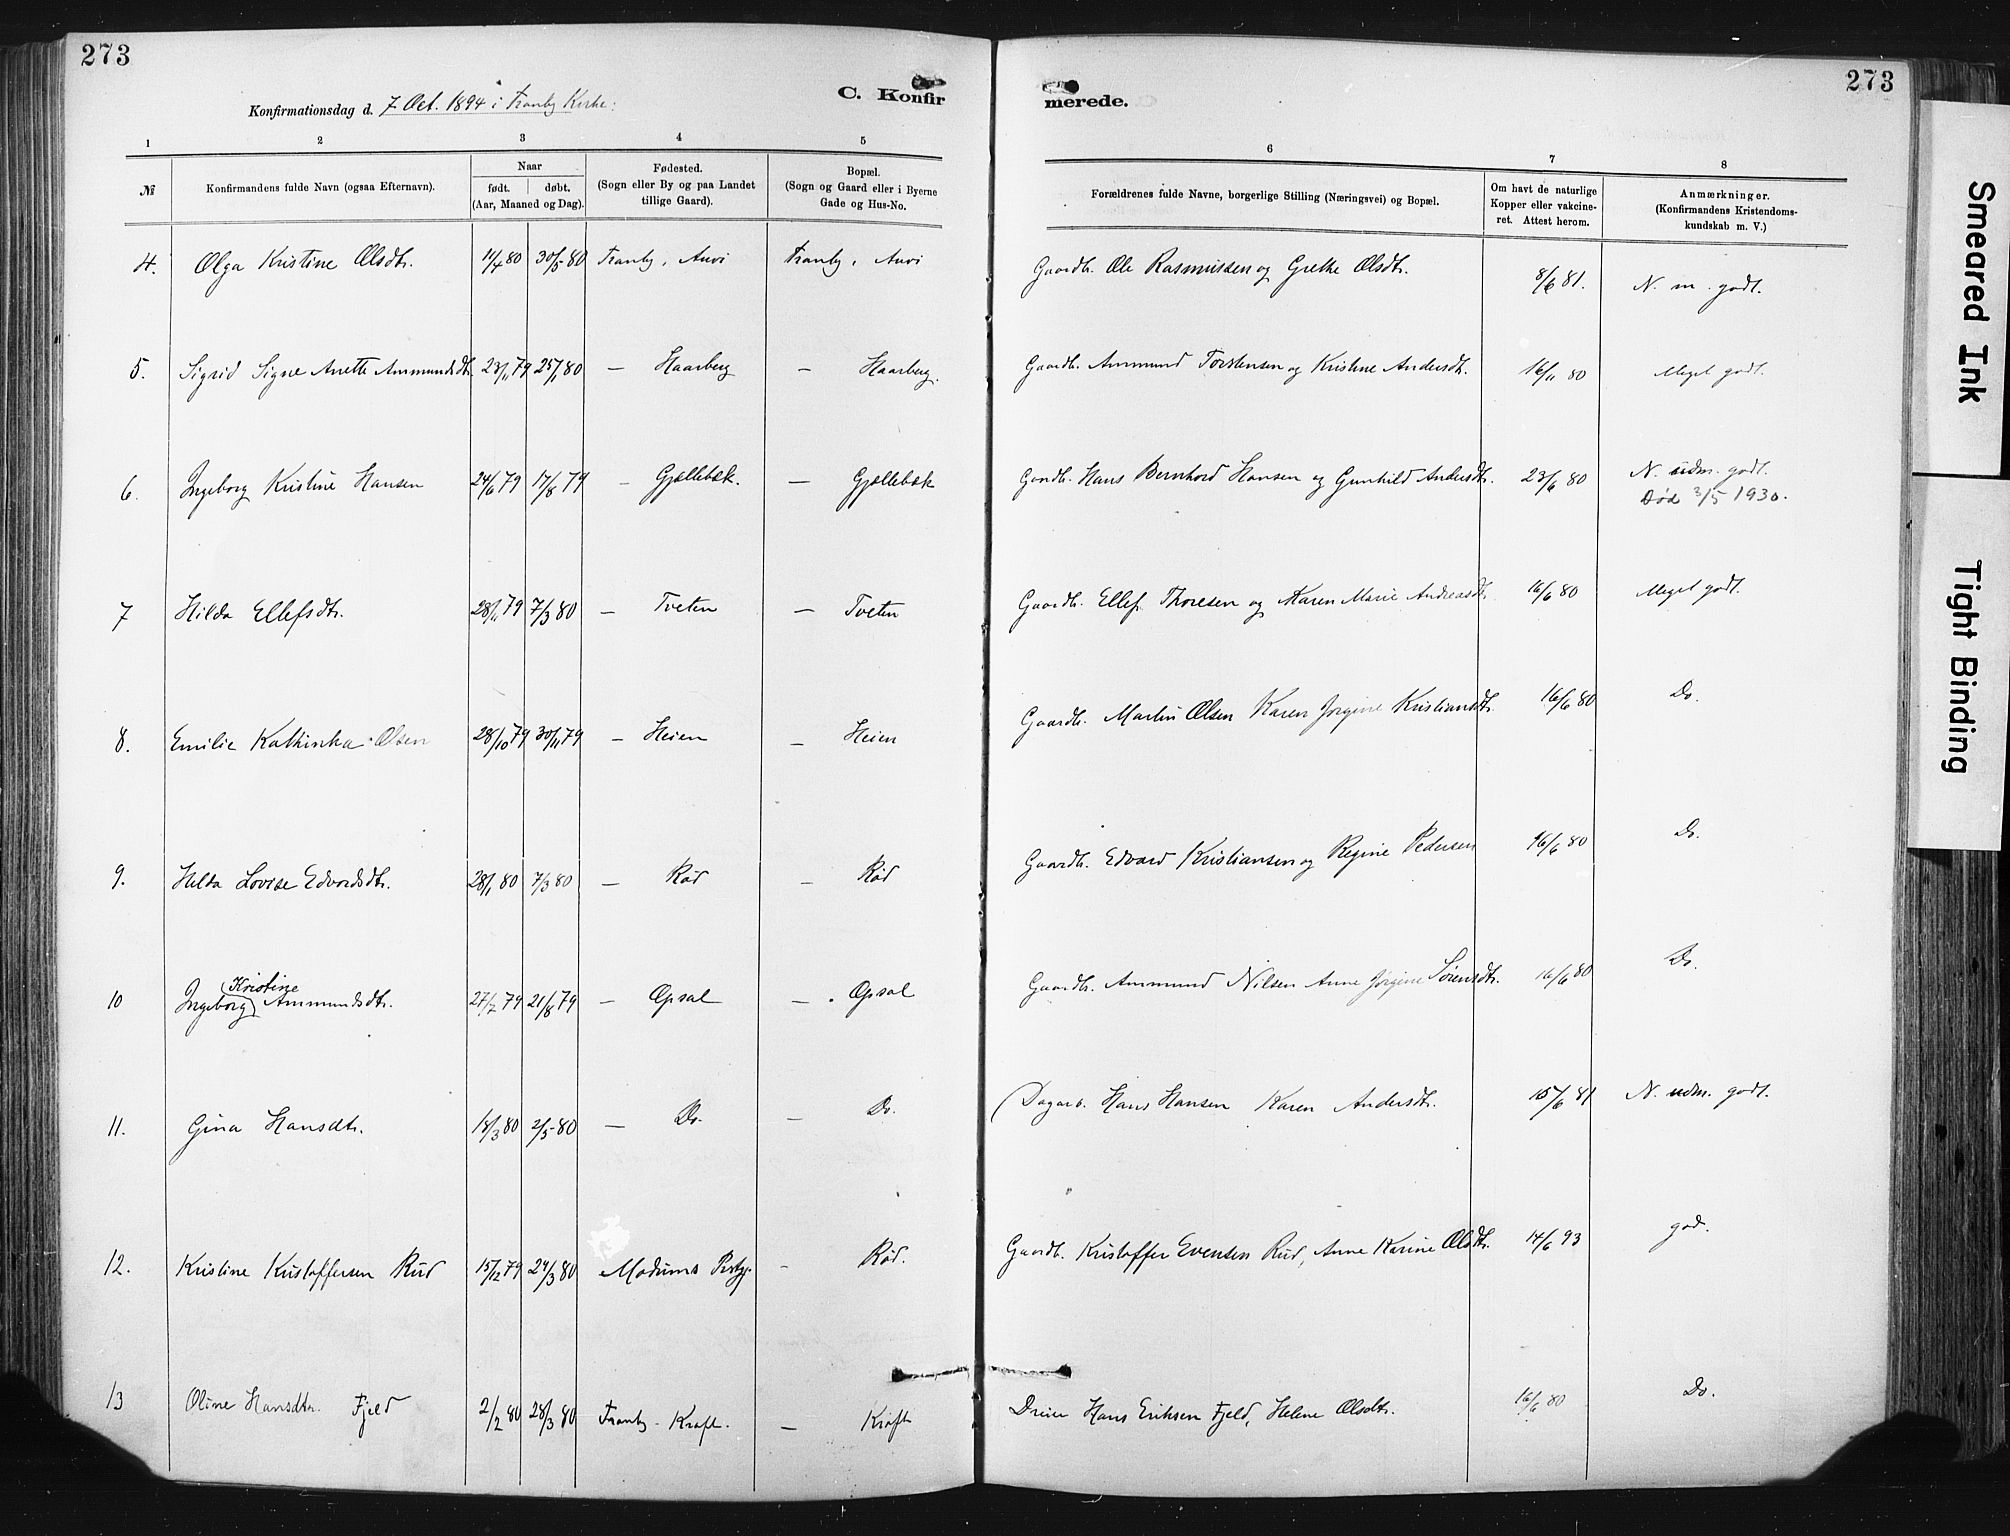 273
273
Konfirmationsdag d. 7 Oct. 1894 i Tranby Kirke:
C. Konfir
merede.
1 2 3 4 5 6 7 8
№
Konfirmandens fulde Navn (ogsaa Efternavn).
Naar
født. døbt.
(Aar, Maaned og Dag).
Fødested.
(Sogn eller By og paa Landet
tillige Gaard).
Bopæl.
(Sogn og Gaard eller i Byerne
Gade og Hus-No.
Forældrenes fulde Navne, borgerlige Stilling (Næringsvei) og Bopæl.
Om havt de naturlige
Kopper eller vakcine-
ret. Attest herom.
Anmærkninger.
(Konfirmandens Kristendoms-
kundskab m. V.)
4. Olga Kristine Olsdtr. 11/4 80 30/5 80 Tranby, Auvi Tranby, Auvi Gaardb. Ole Rasmussen og Grethe Olsdtr. 8/6 81. N. m. godt.
5. Sigrid Signe Anette Ammundsdtr. 23/11 79 25/1 80 — Haarberg — Haarberg. Gaardb. Ammund Torstensen og Kristine Andersdtr. 16/11 80 Meget godt.
6. Ingeborg Kristine Hansen 24/6 79 17/8 79 — Gjellebæk. — Gjellebæk Gaardb. Hans Bernhard Hansen og Gunhild Andersdtr. 23/6 80 N. udm. godt.
Død 3/5 1930.
7 Hilda Ellefsdtr. 28/11 79 7/3 80 — Tveten — Tveten Gaardb. Ellef Thoresen og Karen Marie Andreasdtr. 16/6 80 Meget godt.
8. Emilie Kathinka Olsen 28/10 79 30/11 79 — Heien — Heien Gaardb. Martin Olsen Karen Jørgine Kristiansdtr. 16/6 80 Do.
9. Helda Lovise Edvardsdtr. 28/1 80 7/3 80 — Rød — Rød Gaardb. Edvard Kristiansen og Regine Pedersen 16/6 80 Do.
10 Ingeborg Kristine Ammundsdtr. 27/7 79 21/8 79 — Opsal — Opsal Gaardb. Ammund Nilsen Anne Jørgine Sørensdtr. 16/6 80 Do.
11. Gina Hansdtr. 18/3 80 2/5 80 — Do. — Do. Dagarb. Hans Hansen Karen Andersdtr. 15/6 81 N. udm. godt.
12. Kristine Kristoffersen Rud 15/12 79 29/3 80 Modums Prstgj. - Rød. Gaardb. Kristoffer Evensen Rud, Anne Karine Olsdtr. 14/6 93 god.
13 Oline Hansdtr. Fjeld 2/2 80 28/3 80 Tranby - Kraft. — Kraft Dreier Hans Eriksen Fjeld, Helene Olsdtr. 16/6 80 Do.
Smeared Ink
Tight Binding